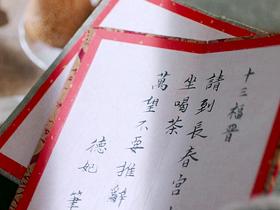 十三福晉
請到長春宮
坐喝茶
萬望不要推辭
德妃
筆